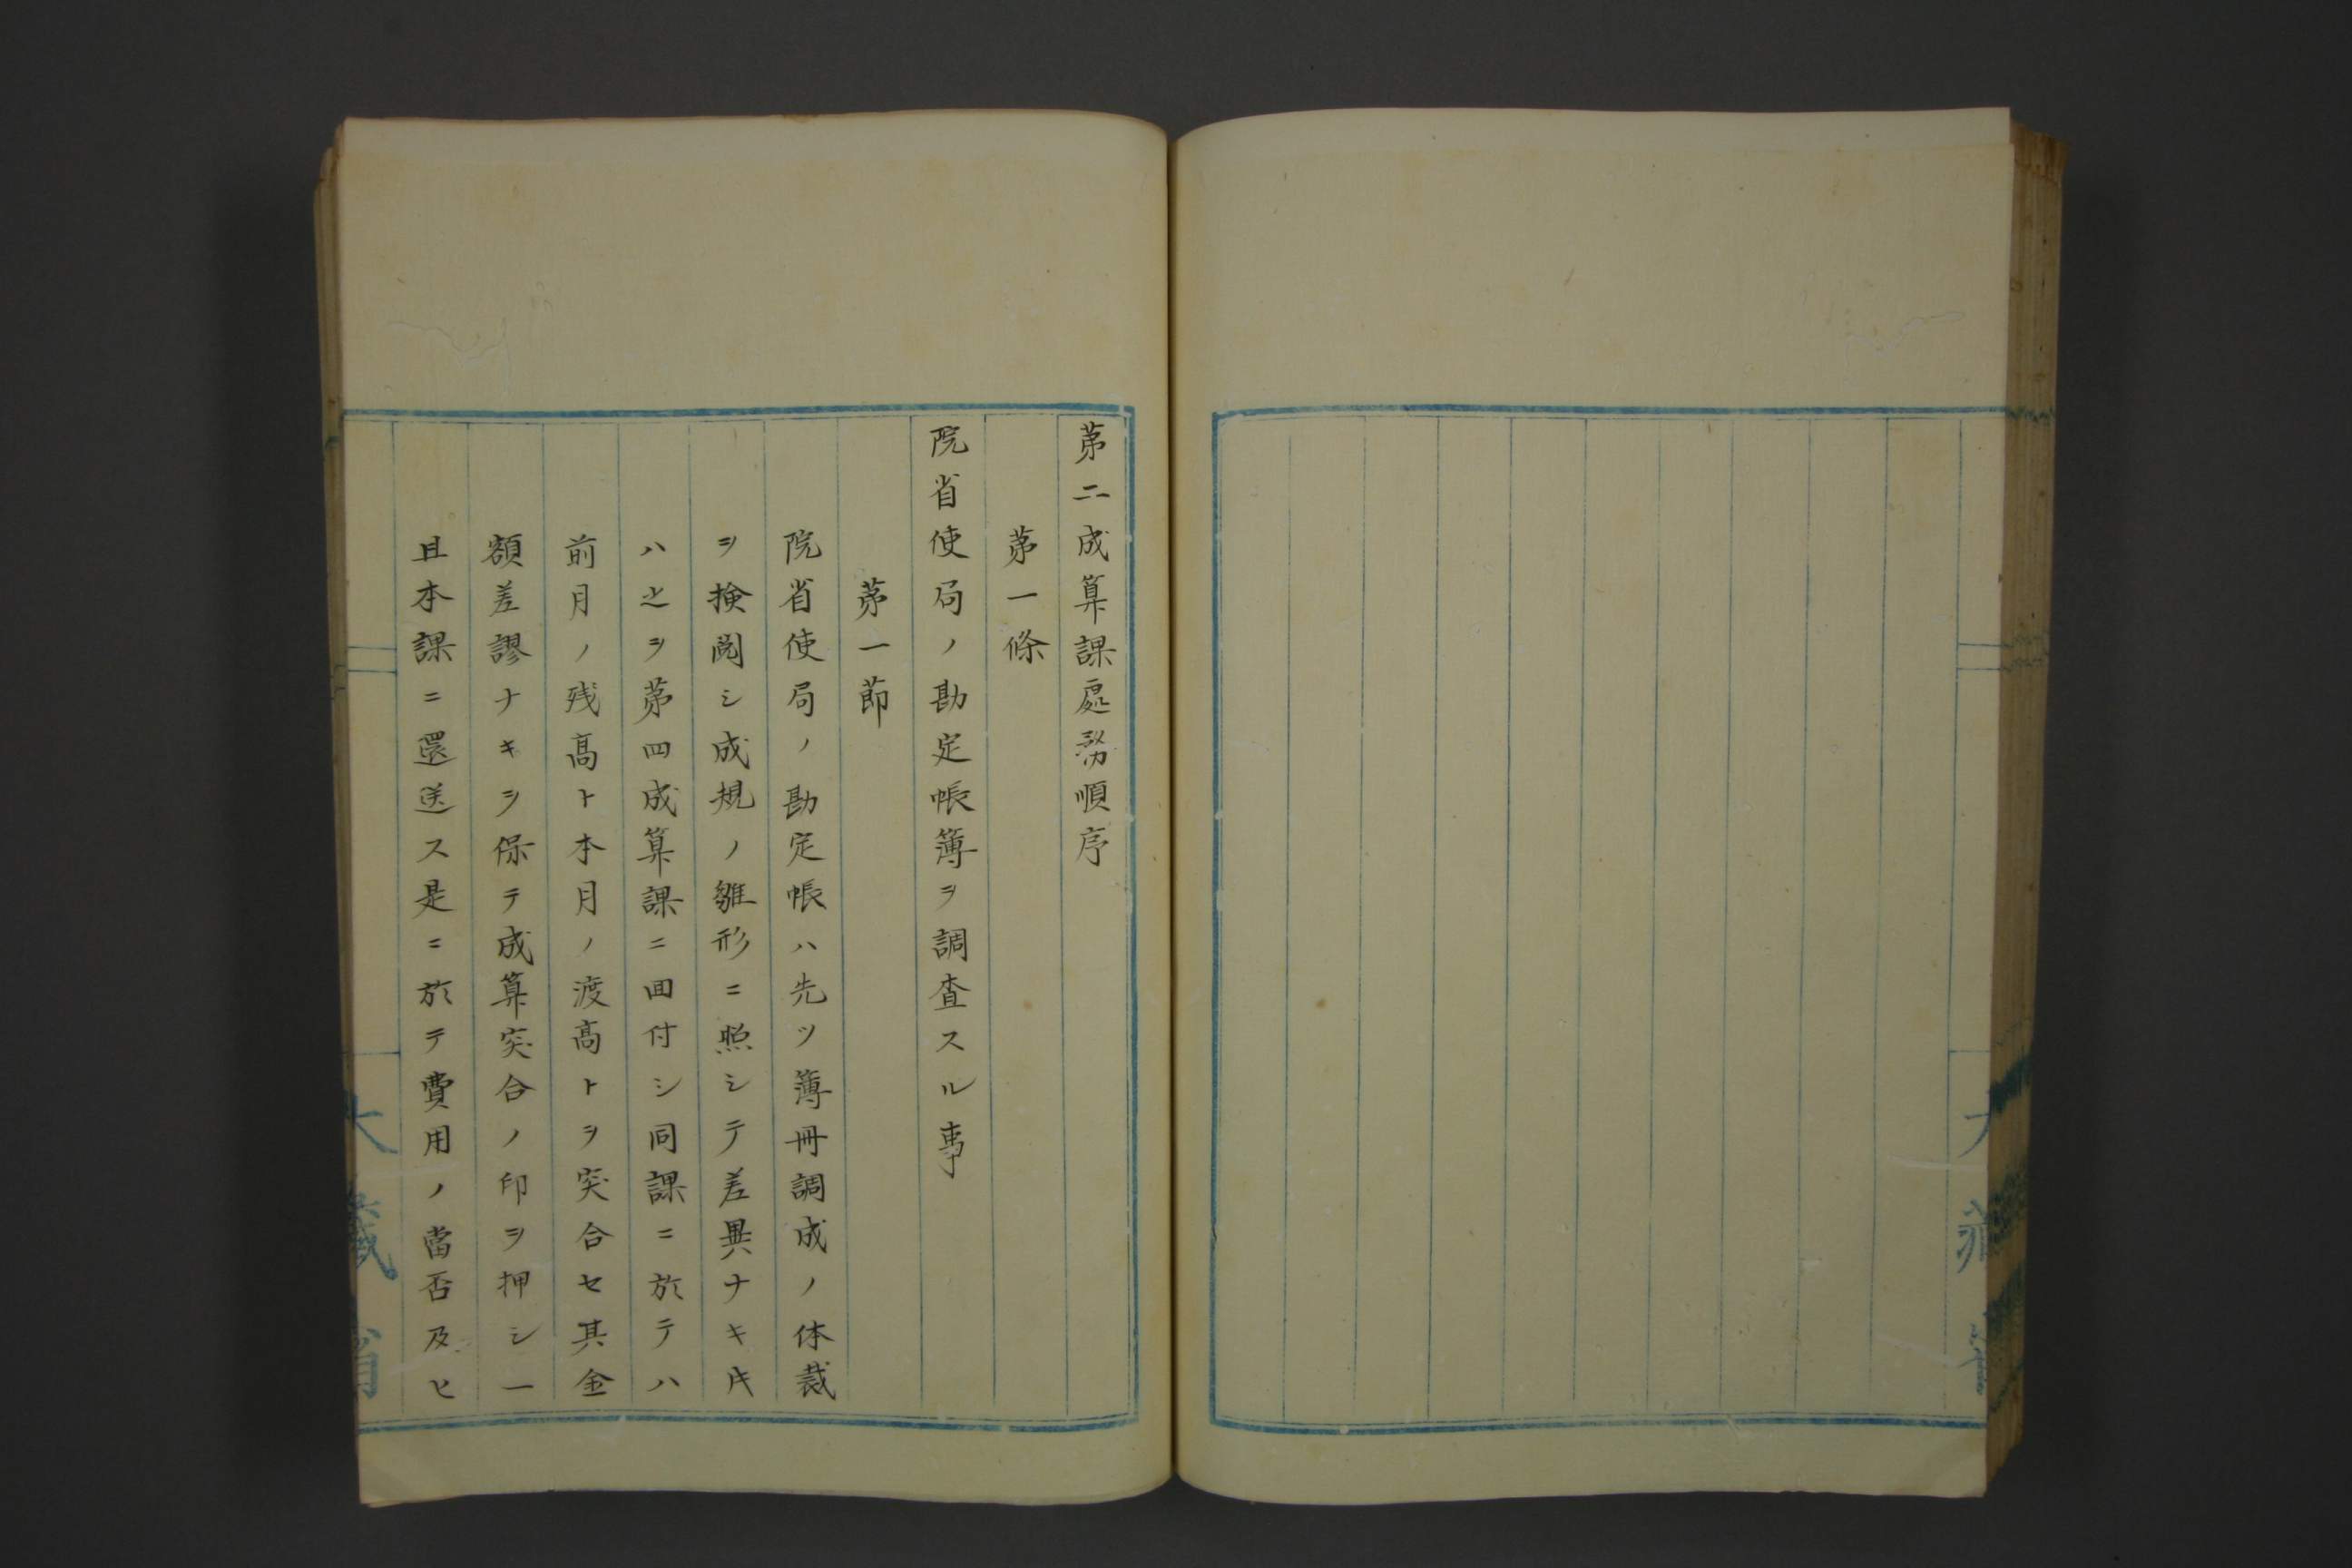 第二成算課處務順序
第一條
院省使局ノ勘定帳簿ヲ調査スル事
第一節
院省使局ノ勘定帳ハ先ツ簿冊調成ノ体裁
ヲ検閲シ成規ノ雛形ニ照シテ差異ナキ片
ハ之ヲ第四成算課ニ回付シ同課ニ於テハ
前月ノ残高ト本月ノ渡高トヲ突合セ其金
額差謬ナキヲ保テ成算突合ノ印ヲ押シ一
且本課ニ還送ス是ニ於テ費用ノ當否及ヒ
大藏省